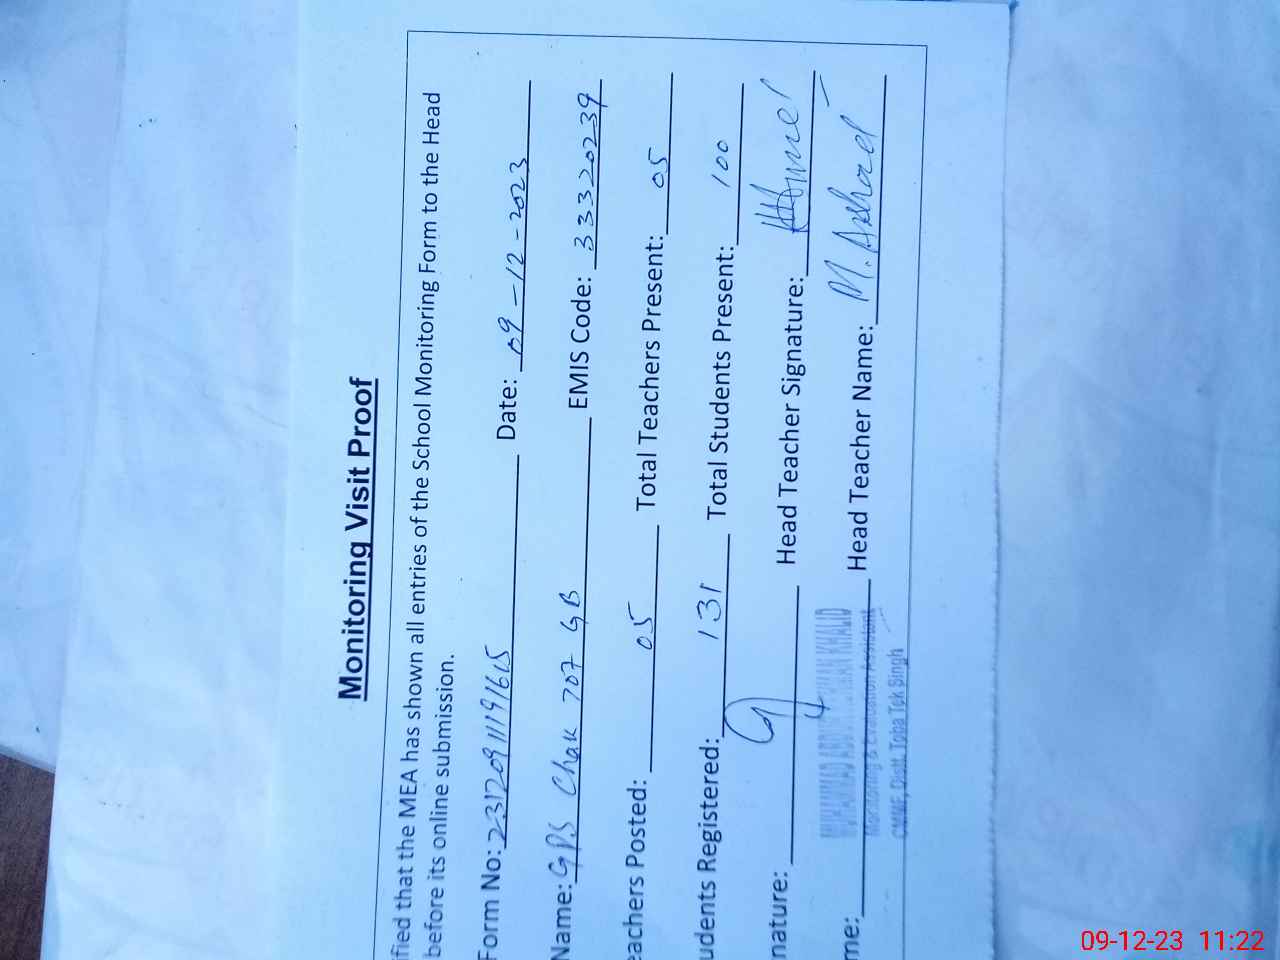 Monitoring Visit Proof
ified that the MEA has shown all entries of the School Monitoring Form to the Head
before its online submission.
Form No: 23120911191615 Date: 09-12-2023
Name: GPS Chak 707 GB EMIS Code: 33320239
eachers Posted: 05 Total Teachers Present: 05
udents Registered: 131 Total Students Present: 100
nature: Head Teacher Signature:
me: Head Teacher Name: M. Arshad
MUHAMMAD KHALID
Monitoring & Evaluation Assistant
CMMF, Distt. Toba Tek Singh
09-12-23 11:22